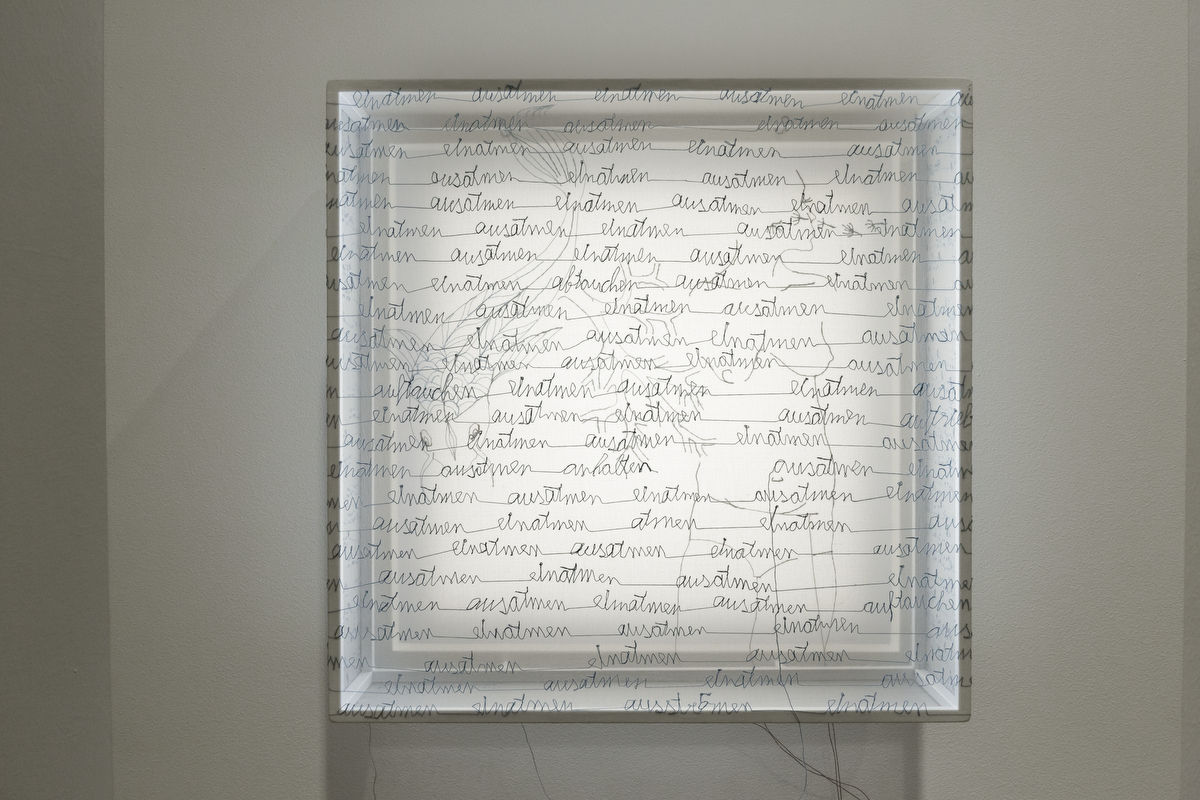 einatmen ausatmen einatmen ausatmen einatmen
ausatmen einatmen ausatmen einatmen ausatmen
ausatmen einatmen ausatmen einatmen ausatmen
einatmen ausatmen einatmen ausatmen einatmen
einatmen ausatmen einatmen ausatmen einatmen ausatmen
einatmen ausatmen einatmen ausatmen einatmen
einatmen ausatmen einatmen ausatmen einatmen
ausatmen einatmen abtauchen ausatmen einatmen
einatmen ausatmen einatmen ausatmen einatmen
ausatmen einatmen ausatmen einatmen ausatmen
ausatmen einatmen ausatmen einatmen ausatmen
auftauchen einatmen ausatmen einatmen ausatmen
einatmen ausatmen einatmen ausatmen auftrieb
ausatmen einatmen ausatmen einatmen ausatmen
einatmen ausatmen anhalten ausatmen einatmen
einatmen ausatmen einatmen ausatmen einatmen
ausatmen einatmen atmen einatmen
ausatmen einatmen ausatmen einatmen ausatmen
ausatmen einatmen ausatmen einatmen
einatmen ausatmen einatmen ausatmen auftauchen
ausatmen einatmen ausatmen einatmen
ausatmen einatmen ausatmen einatmen
einatmen ausatmen einatmen ausatmen
ausatmen einatmen ausströmen einatmen